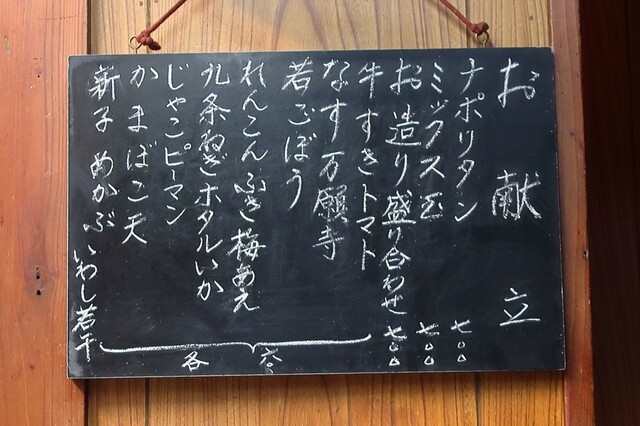 お献立
ナポリタン 七〇〇
ミックス玉 七〇〇
お造り盛り合わせ 七〇〇
牛すきトマト
なす万願寺
若ごぼう
れんこんふき梅あえ
九条ねぎホタルいか
じゃこピーマン
かまぼこ天
新子 めかぶ いわし若干
各 六〇